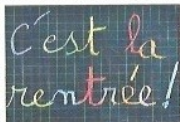 C'est la
rentrée!